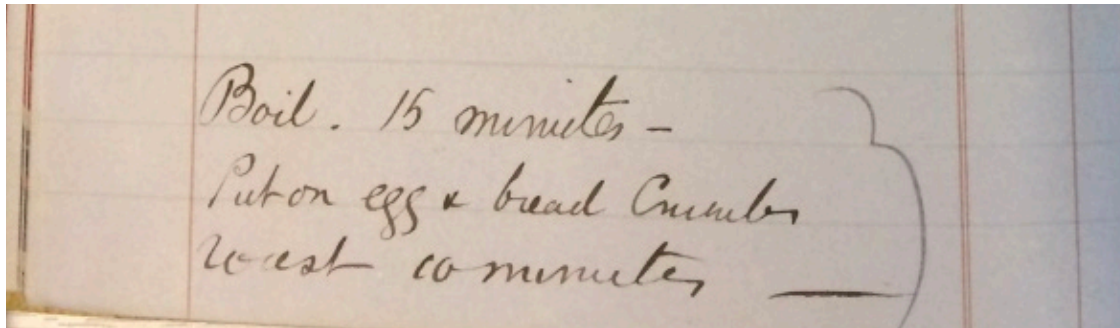 Boil. 15 minutes -
Put on egg & bread Crumbs
roast 10 minutes